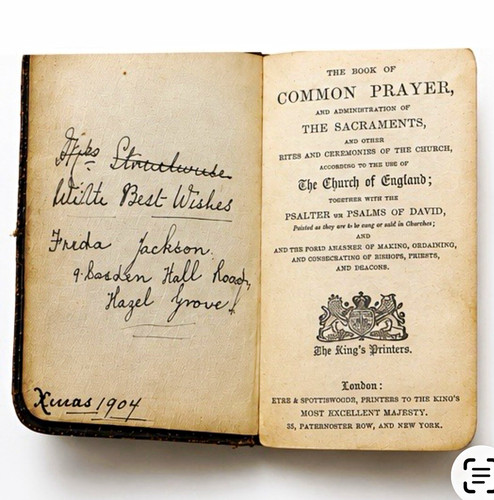 Wilte Best Wishes
Freda Jackson.
Hall Road,
Hazel Grove!
Xmas 1904
THE BOOK OF
COMMON PRAYER,
AND ADMINISTRATION OF
THE SACRAMENTS,
AND OTHER
RITES AND CEREMONIES OF THE CHURCH,
ACCORDING TO THE USE OF
The Church of England;
TOGETHER WITH THE
PSALTER UR PSALMS OF DAVID,
Painted as they are to be sung or said in Churches;
AND
AND THE OF MAKING, ORDAINING,
AND CONSECRATING OF BISHOPS, PRIESTS,
AND DEACONS.
The King's Printers.
London:
EYRE & SPOTTISWOODE, PRINTERS TO THE KING'S
MOST EXCELLENT MAJESTY.
35, PATERNOSTER ROW, AND NEW YORK.